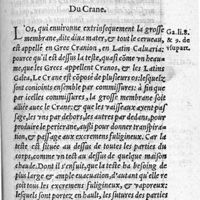 Du Crane.
L'Os, qui enuironne extrinsequement la grosse
membrane, dite dura mater, et tout le cerueau,
est appellé en Grec Cranion, en Latin Caluaria:
pource qu'il est dessus la teste, quasi cõme vn heau-
me, que les Grecs appellent Cranos, & les Latins
Galea, Le Crane est cõposé de plusieurs os, lesquelz
sont conioints ensemble par commissures: à fin que
par icelles commissures, la grosse membrane soit
alliée auec le Crane: & que les vaisseaux ayent pas-
sage, les vns par dehors, les autres par dedans, pour
produire prochaines, et aussi à donner transpira-
tion, & passage aux excremens fuligineux. Car la
teste est située au dessus de toutes les parties du
corps, comme vn toict au dessus de quelque maison
chaude. Dont il s'ensuit, que la teste ha besoing de
plus large & ample euacuation, d'autant qu'elle re-
çoit tous les excremens fuligineux, & vaporeux:
lesquels sont portez en hault, les futures des parties
Ga. li. 8.
& 9. de
vsu part.